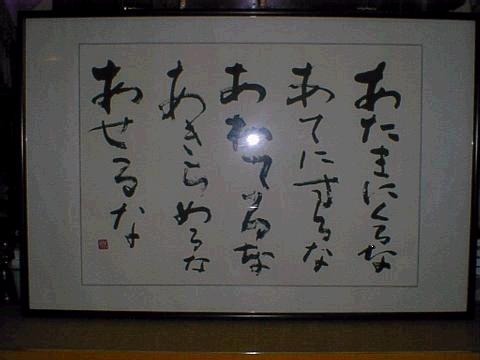 あたまにくるな
あてにするな
あわてるな
あきらめるな
あせるな